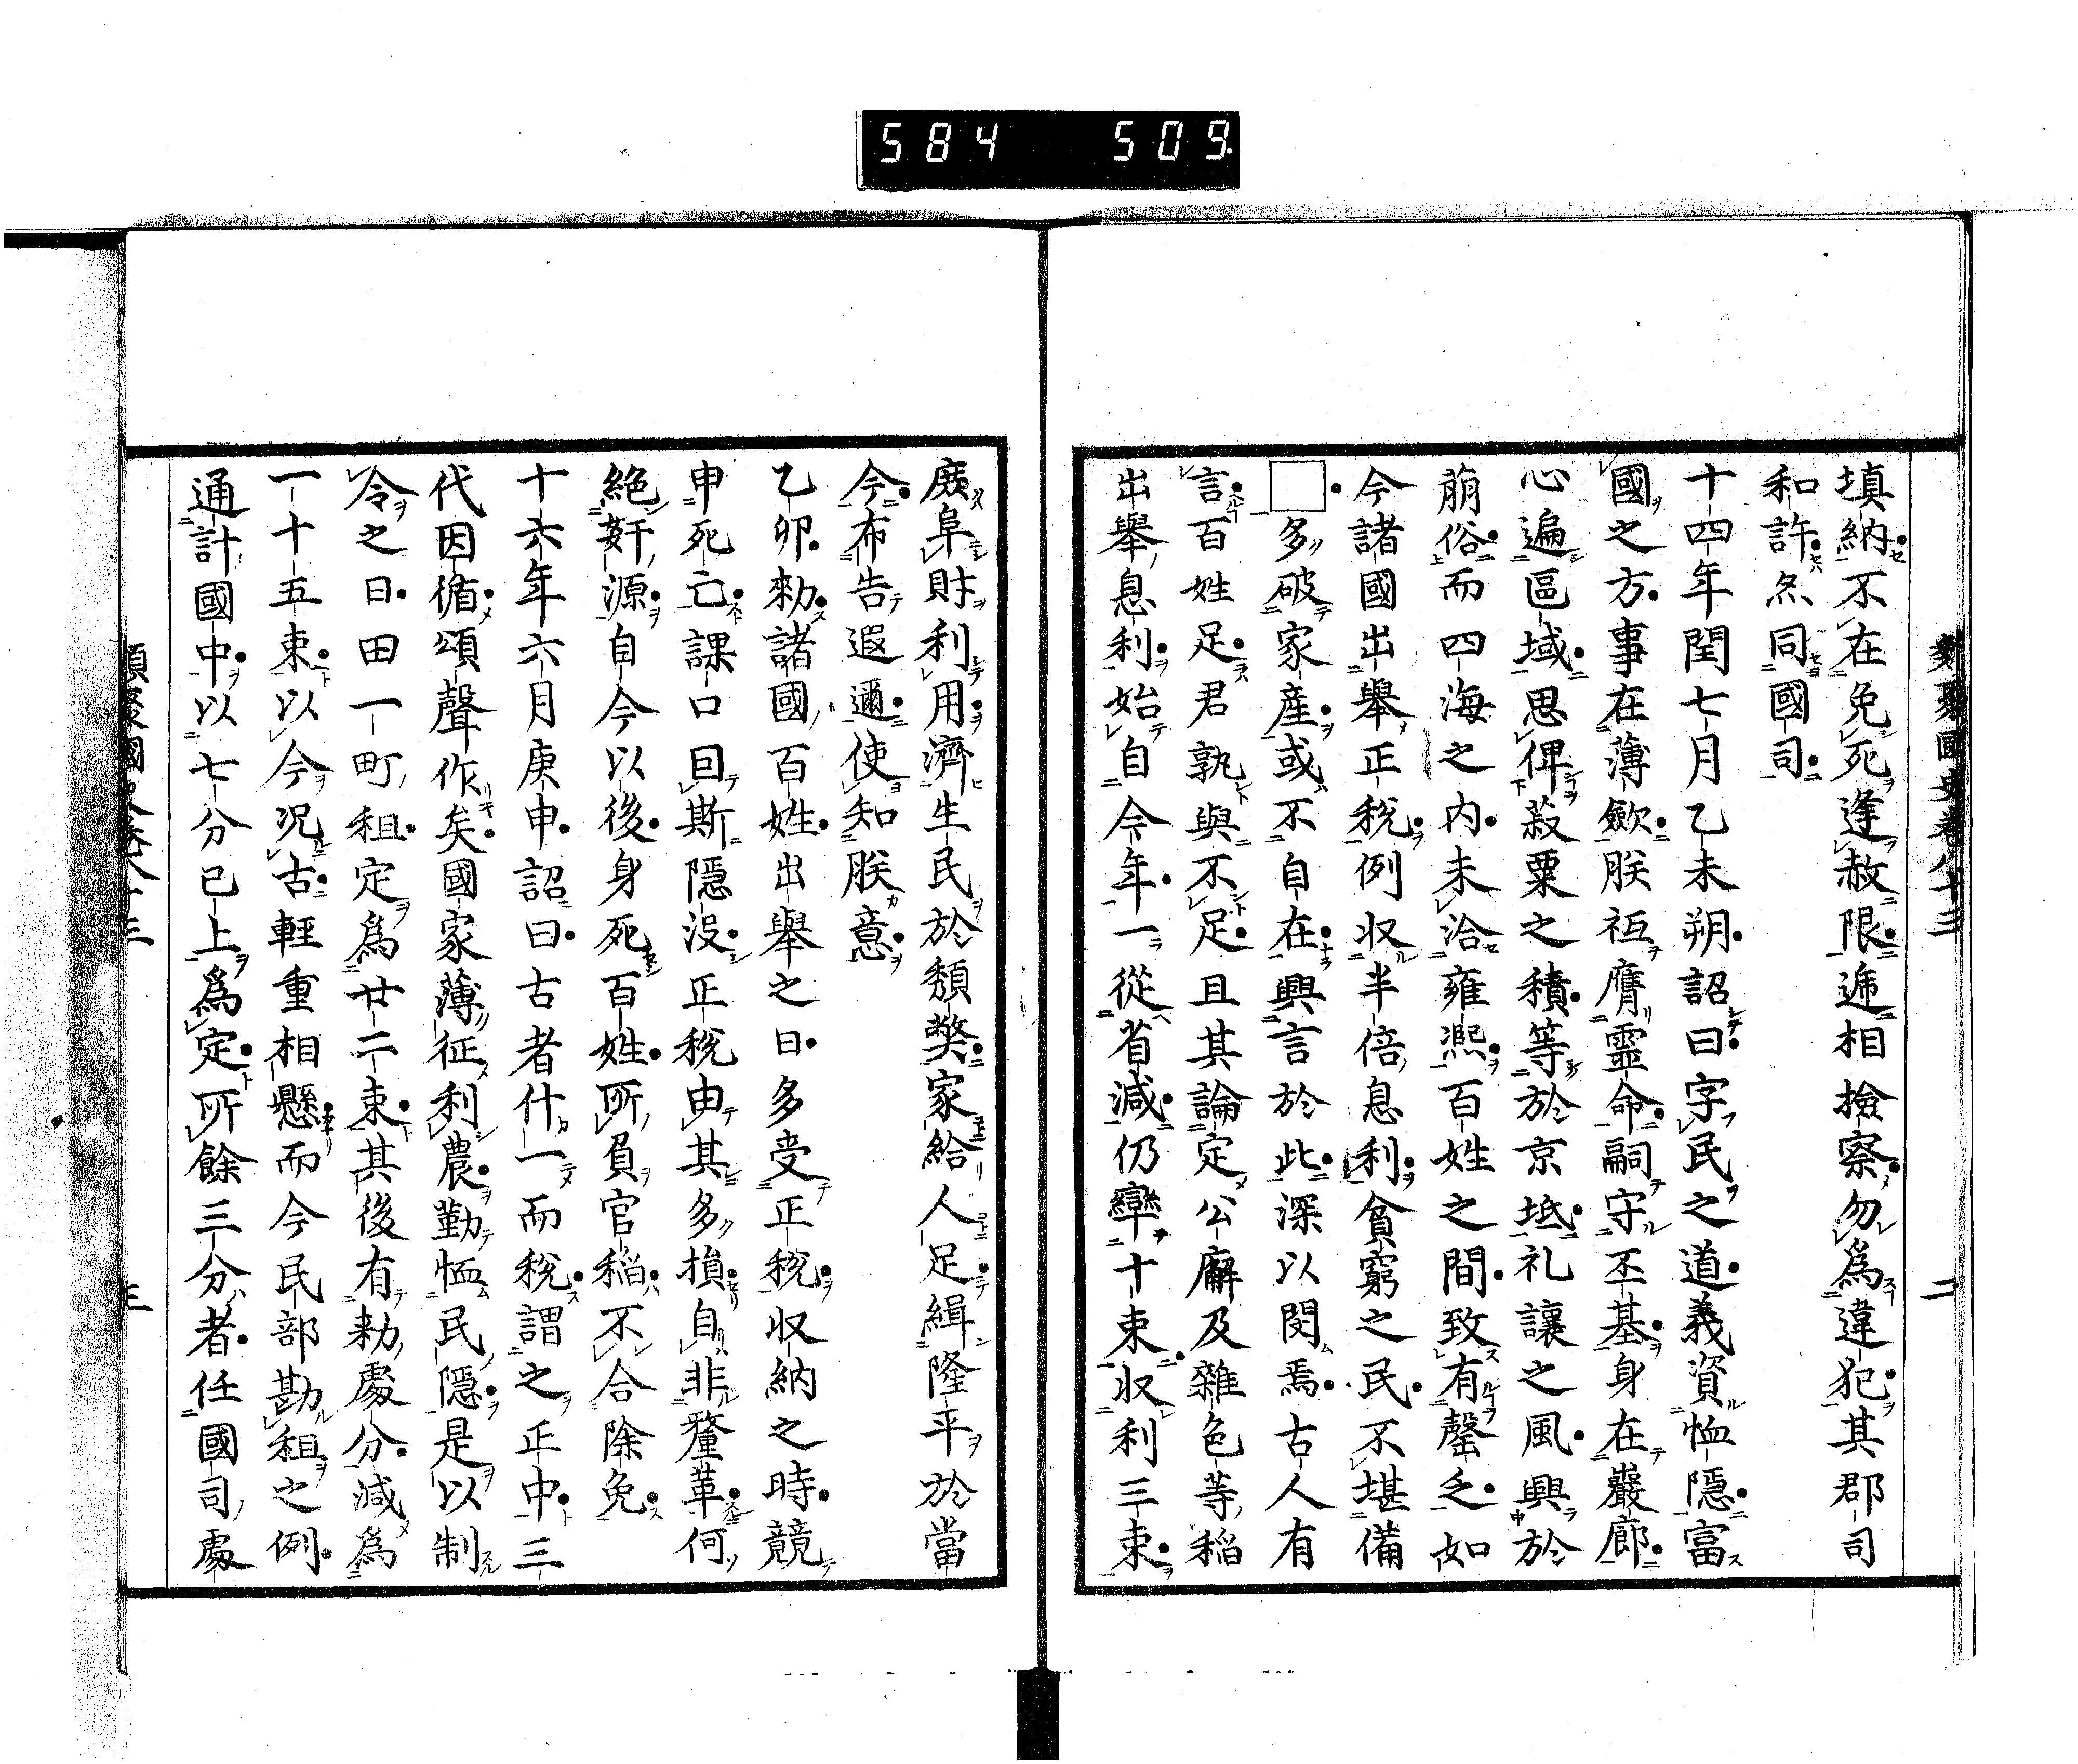 584 509
類聚國史卷八十三 二
填納不在免死逢赦限逓相撿察勿爲違犯其郡司
和許亦同國司
十四年閏七月乙未朔詔曰字民之道義資恤隱富
國之方事在薄歛朕祗膺靈命嗣守丕基身在巖廊
心遍區域思俾菽粟之積等於京坻礼讓之風興於
萠俗而四海之内未洽雍熈百姓之間致有罄乏如
今諸國出舉正税例収半倍息利貧窮之民不堪備
□多破家産或不自在興言於此深以閔焉古人有
言百姓足君孰與不足且其論定公廨及雜色等稲
出舉息利始自今年一從省減仍擧十束収利三束
庶阜財利用濟生民於頽獘家給人足緝隆平於當
今布告遐邇使知朕意
乙卯勑諸國百姓出舉之日多受正税収納之時競
申死亡課口囙斯隱没正税由其多損自非釐革何
絶姧源自今以後身死百姓所負官稲不合除免
十六年六月庚申詔曰古者什一而税謂之正中三
代因循頌聲作矣國家薄征利農勤恤民隱是以制
令之日田一町租定爲廿二束其後有勑處分減爲
一十五束以今况古輕重相懸而今民部勘租之例
通計國中以七分已上爲定所餘三分者任國司處
類聚國史卷八十三 三